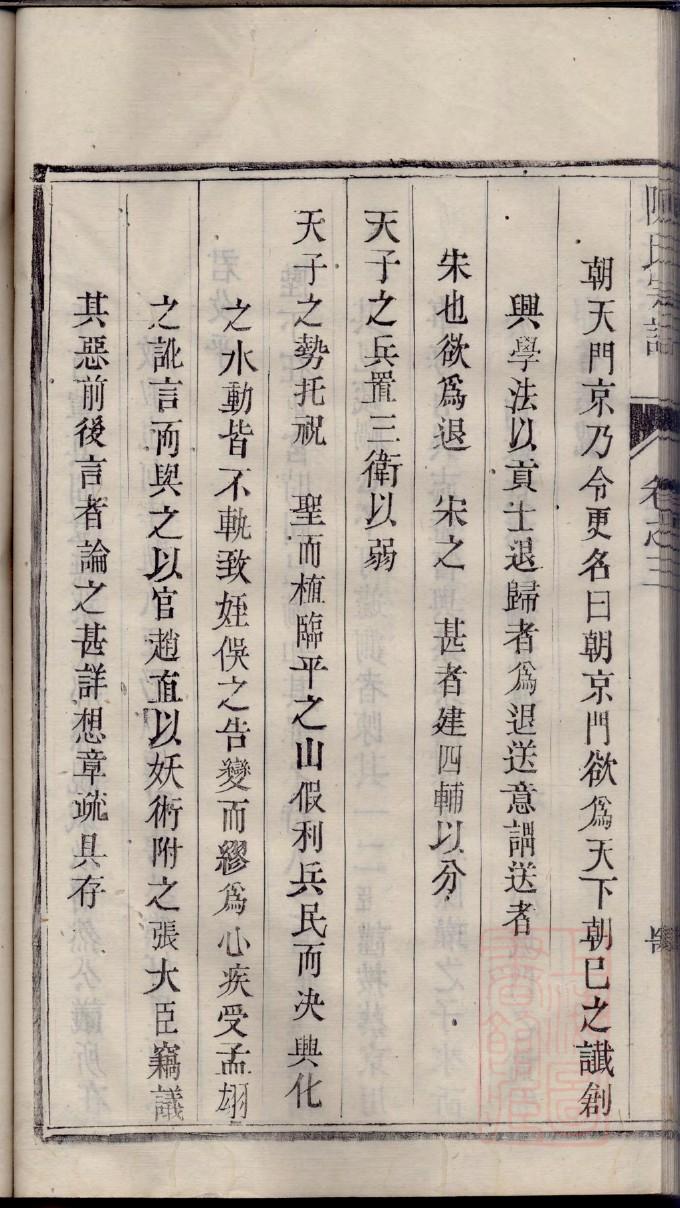 陳氏宗譜 卷之三
朝天門京乃令更名曰朝京門欲爲天下朝巳之讖創
興學法以貢士退歸者爲退送意謂送者
朱也欲爲退 宋之 甚者建四輔以分
天子之兵置三衛以弱
天子之勢托祝 聖而植臨平之山假利兵民而决興化
之水動皆不軌致姪俁之告變而繆爲心疾受孟翊
之訛言而與之以官趙直以妖術附之張大臣竊議
其惡前後言者論之甚詳想章疏具存